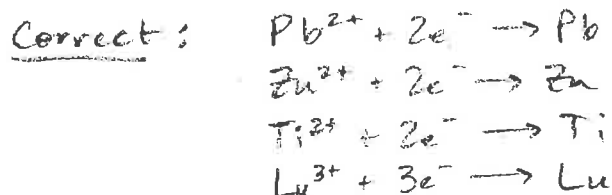 Correct: Pb²⁺ + 2e⁻ → Pb
Zn²⁺ + 2e⁻ → Zn
Ti²⁺ + 2e⁻ → Ti
Lu³⁺ + 3e⁻ → Lu